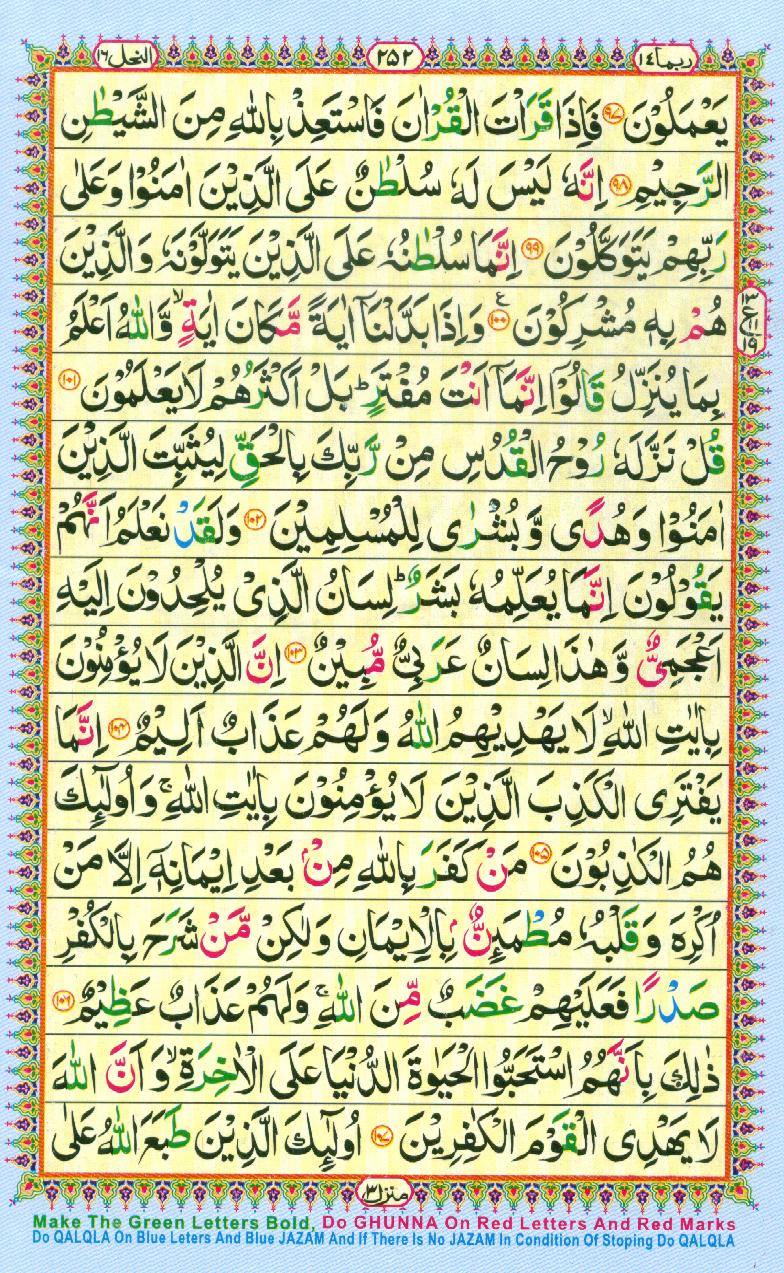 ربما ١٤ ٢٥٢ النحل ١٦
يَعْمَلُوْنَ ﴿۹۷﴾ فَاِذَا قَرَاْتَ الْقُرْاٰنَ فَاسْتَعِذْ بِاللّٰهِ مِنَ الشَّيْطٰنِ
الرَّجِيْمِ ﴿۹۸﴾ اِنَّهٗ لَيْسَ لَهٗ سُلْطٰنٌ عَلَى الَّذِيْنَ اٰمَنُوْا وَعَلٰى
رَبِّهِمْ يَتَوَكَّلُوْنَ ﴿۹۹﴾ اِنَّمَا سُلْطٰنُهٗ عَلَى الَّذِيْنَ يَتَوَلَّوْنَهٗ وَالَّذِيْنَ
هُمْ بِهٖ مُشْرِكُوْنَ ﴿۱۰۰﴾ ع وَاِذَا بَدَّلْنَاۤ اٰيَةً مَّكَانَ اٰيَةٍ ۙ وَّاللّٰهُ اَعْلَمُ
بِمَا يُنَزِّلُ قَالُوْۤا اِنَّمَاۤ اَنْتَ مُفْتَرٍ ؕ بَلْ اَكْثَرُهُمْ لَا يَعْلَمُوْنَ ﴿۱۰۱﴾
قُلْ نَزَّلَهٗ رُوْحُ الْقُدُسِ مِنْ رَّبِّكَ بِالْحَقِّ لِيُثَبِّتَ الَّذِيْنَ
اٰمَنُوْا وَهُدًى وَّبُشْرٰى لِلْمُسْلِمِيْنَ ﴿۱۰۲﴾ وَلَقَدْ نَعْلَمُ اَنَّهُمْ
يَقُوْلُوْنَ اِنَّمَا يُعَلِّمُهٗ بَشَرٌ ؕ لِسَانُ الَّذِيْ يُلْحِدُوْنَ اِلَيْهِ
اَعْجَمِيٌّ وَّهٰذَا لِسَانٌ عَرَبِيٌّ مُّبِيْنٌ ﴿۱۰۳﴾ اِنَّ الَّذِيْنَ لَا يُؤْمِنُوْنَ
بِاٰيٰتِ اللّٰهِ ۙ لَا يَهْدِيْهِمُ اللّٰهُ وَلَهُمْ عَذَابٌ اَلِيْمٌ ﴿۱۰۴﴾ اِنَّمَا
يَفْتَرِى الْكَذِبَ الَّذِيْنَ لَا يُؤْمِنُوْنَ بِاٰيٰتِ اللّٰهِ ۚ وَاُولٰٓئِكَ
هُمُ الْكٰذِبُوْنَ ﴿۱۰۵﴾ مَنْ كَفَرَ بِاللّٰهِ مِنْۢ بَعْدِ اِيْمَانِهٖۤ اِلَّا مَنْ
اُكْرِهَ وَقَلْبُهٗ مُطْمَئِنٌّۢ بِالْاِيْمَانِ وَلٰكِنْ مَّنْ شَرَحَ بِالْكُفْرِ
صَدْرًا فَعَلَيْهِمْ غَضَبٌ مِّنَ اللّٰهِ ۚ وَلَهُمْ عَذَابٌ عَظِيْمٌ ﴿۱۰۶﴾
ذٰلِكَ بِاَنَّهُمُ اسْتَحَبُّوا الْحَيٰوةَ الدُّنْيَا عَلَى الْاٰخِرَةِ ۙ وَاَنَّ اللّٰهَ
لَا يَهْدِى الْقَوْمَ الْكٰفِرِيْنَ ﴿۱۰۷﴾ اُولٰٓئِكَ الَّذِيْنَ طَبَعَ اللّٰهُ عَلٰى
منزل ٣
Make The Green Letters Bold, Do GHUNNA On Red Letters And Red Marks
Do QALQLA On Blue Leters And Blue JAZAM And If There Is No JAZAM In Condition Of Stoping Do QALQLA